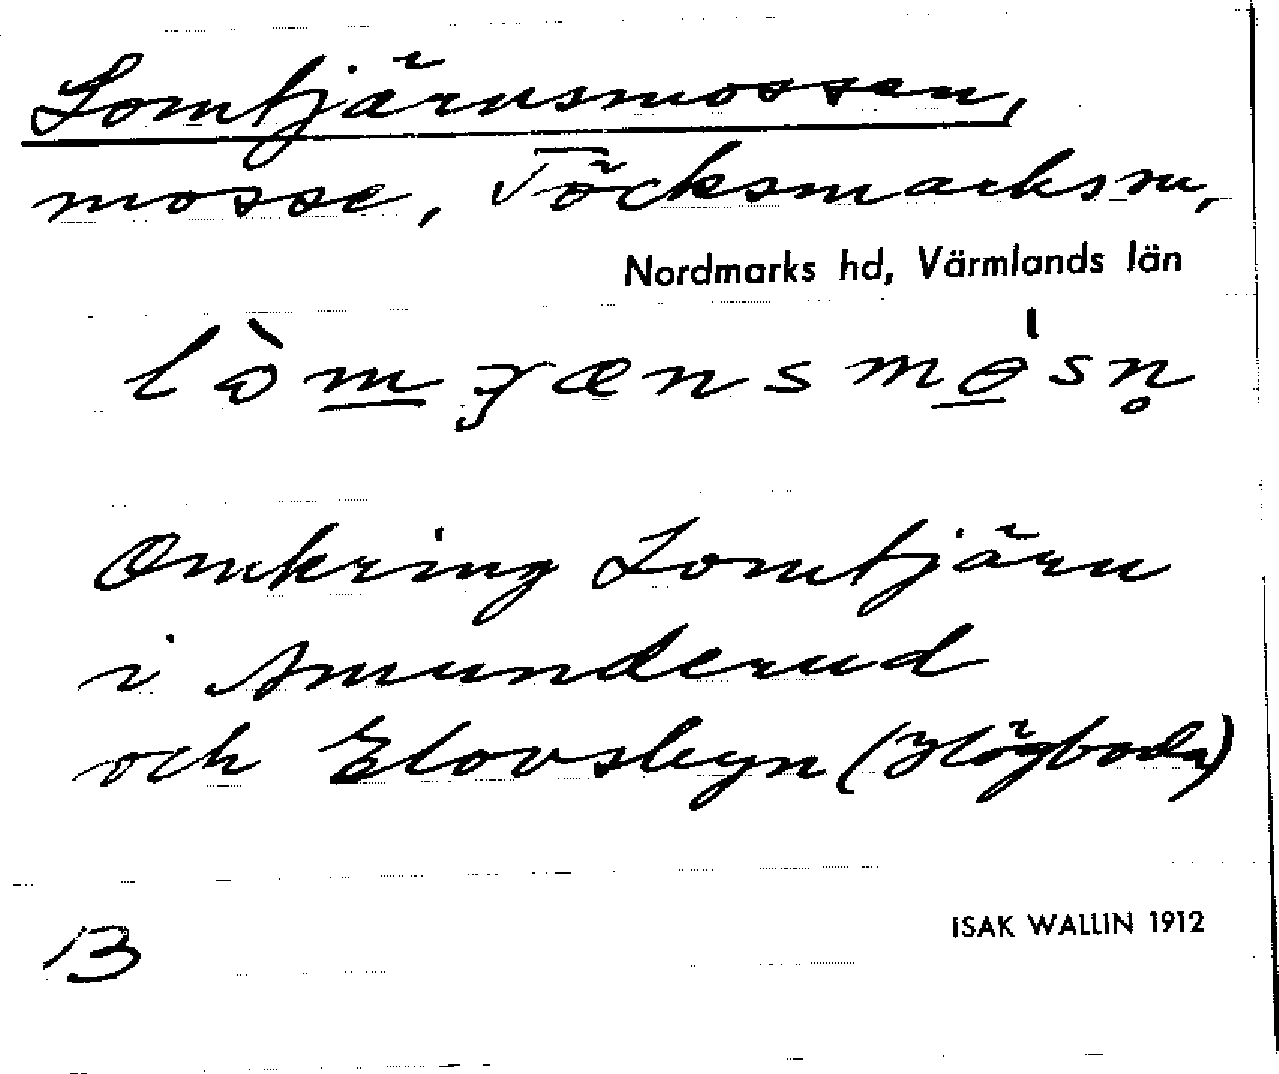 Lomtjärnsmossen,
mosse, Töcksmarks sn,
Nordmarks hd, Värmlands län
Omkring Lomtjärn
i Amunderud
och Elovsbyn (Högboda)
B
ISAK WALLIN 1912